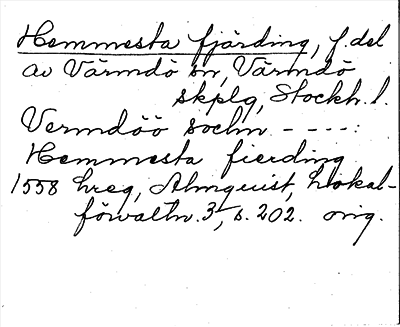 Hemmesta fjärding, f. del
av Värmdö sn, Värmdö
skplg, Stockh. l.
Vermdöö sochn - - - - :
Hemmesta fierding
1558 hreg, Almquist, Lokal-
förvaltn. 3, s. 202. orig.